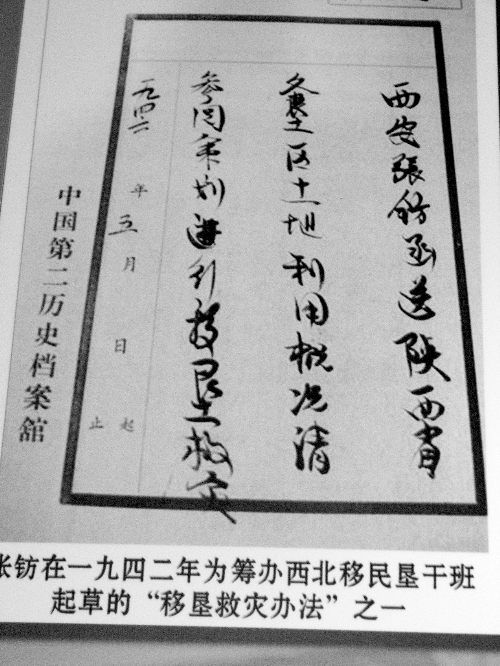 西安張鈁函送陕西省
各垦区土地利用概况请
参阅策划進行移垦救灾
一九四六年五月 日 起止
中国第二历史档案館
张钫在一九四二年为筹办西北移民垦干班
起草的“移垦救灾办法”之一